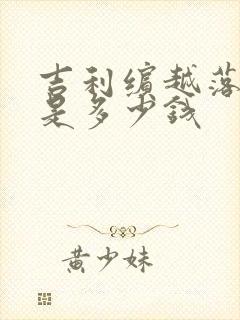 吉利缤越落
是多少钱
黄少妹